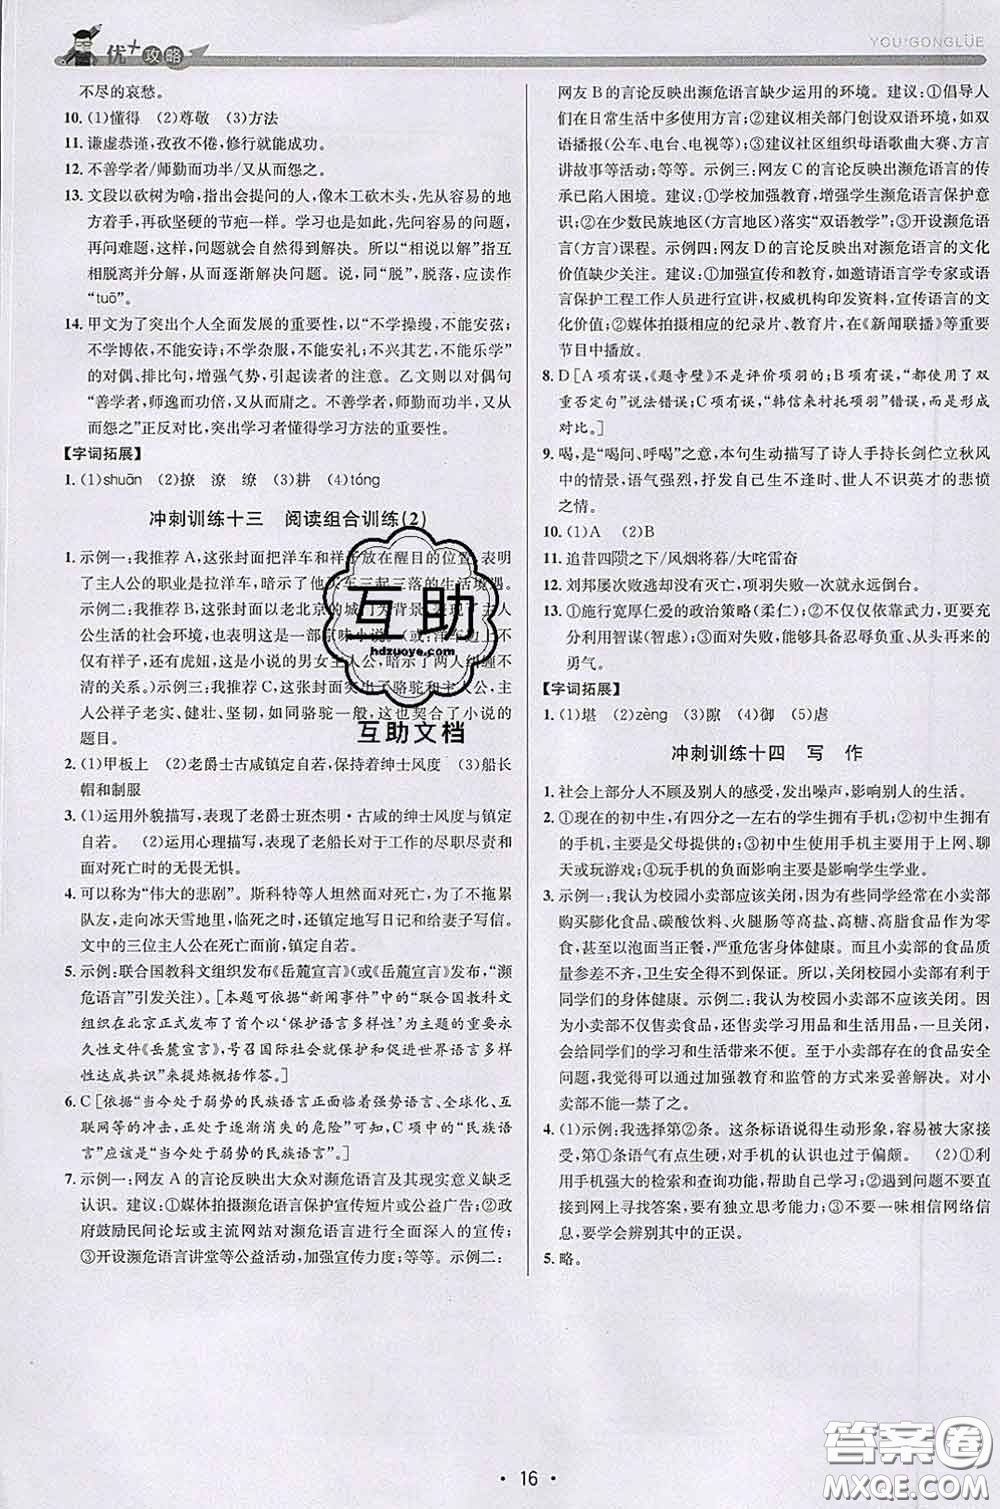 优+攻略
YOU+GONGLÜE
不尽的哀愁。
10. (1)懂得 (2)尊敬 (3)方法
11. 谦虚恭谨,孜孜不倦,修行就能成功。
12. 不善学者/师勤而功半/又从而怨之。
13. 文段以砍树为喻,指出会提问的人,像木工砍木头,先砍容易的
地方着手,再砍坚硬的节疤一样。学习也是如此,先问容易的问题,
再问难题,这样,问题就会自然得到解决。所以“相说以解”指互
相脱离并分析从而逐渐解决问题。说,同“脱”,脱落,应读作
“tuō”。
14. 甲文为了突出个人全面发展的重要性,以“不学操缦,不能安弦;
不学博依,不能安诗;不学杂服,不能安礼;不兴其艺,不能乐学”
的对偶、排比句,增强气势,引起读者的注意。乙文则以对偶句
“善学者,师逸而功倍,又从而庸之。不善学者,师勤而功半,又从
而怨之”正反对比,突出学习者懂得学习方法的重要性。
【字词拓展】
1. (1)shuān (2)撩 潦 缭 (3)耕 (4)tóng
冲刺训练十三 阅读组合训练(2)
1. 示例一:我推荐A,这张封面把洋车和祥子放在醒目的位置,表明
了主人公的职业是拉洋车,暗示了他人车三起三落的生活境遇。
示例二:我推荐B,这张封面以老北京的城门为背景,表现了主人
公生活的社会环境,也表明这是一部京味小说。(或:洋车上不
仅有祥子,还有虎妞,这是小说的男女主人公,暗示了两人纠缠不
清的关系。)示例三:我推荐C,这张封面突出了骆驼和主人公,主
人公祥子老实、健壮、坚韧,如同骆驼一般,这也契合了小说的
题目。
2. (1)甲板上 (2)老爵士古咸镇定自若,保持着绅士风度 (3)船长
帽和制服
3. (1)运用外貌描写,表现了老爵士班杰明·古咸的绅士风度与镇定
自若。 (2)运用心理描写,表现了老船长对于工作的尽职尽责和
面对死亡时的无畏无惧。
4. 可以称为“伟大的悲剧”。斯科特等人坦然面对死亡,为了不拖累
队友,走向冰天雪地里,临死之时,还镇定地写日记和给妻子写信。
文中的三位主人公在死亡面前,镇定自若。
5. 示例:联合国教科文组织发布《岳麓宣言》(或《岳麓宣言》发布,“濒
危语言”引发关注)。[本题可依据“新闻事件”中的“联合国教科文
组织在北京正式发布了首个以‘保护语言多样性’为主题的重要
永久性文件《岳麓宣言》,号召国际社会就保护和促进世界语言多
样性达成共识”来提炼概括作答。]
6. C[依据“当今处于弱势的民族语言正面临着强势语言、全球化、互
联网等的冲击,正处在逐渐消失的危险”可知,C项中的“民族语
言”应该是“当今处于弱势的民族语言”。]
7. 示例一:网友A的言论反映出大众对濒危语言及其现实意义缺乏
认识。建议:①媒体拍摄濒危语言保护宣传短片或公益广告;②政
府鼓励民间论坛或主流网站对濒危语言进行全面深入的宣传;
③开设濒危语言讲堂等公益活动,加强宣传力度;等等。示例二:
网友B的言论反映出濒危语言缺少运用的环境。建议:①倡导人
们在日常生活中多使用方言;②建议相关部门创设双语环境,如双
语播报(公车、电台、电视等);③建议社区组织母语歌曲大赛、方言
讲故事等活动;等等。示例三:网友C的言论反映出濒危语言的传
承已陷入困境。建议:①学校加强教育,增强学生濒危语言保护意
识;②在少数民族地区(方言地区)落实“双语教学”;③开设濒危语
言(方言)课程。示例四:网友D的言论反映出对濒危语言的文化
价值缺少关注。建议:①加强宣传和教育,如邀请语言学专家或语
言保护工程工作人员进行宣讲,权威机构印发资料,宣传语言的文
化价值;②媒体拍摄相应的纪录片、教育片,在《新闻联播》等重要
节目中播放。
8. D[A项有误,《题寺壁》不是评价项羽的;B项有误,“使用了双
重否定句”说法错误;C项有误,“韩信来衬托项羽”错误,而是形成
对比。]
9. 喝,是“喝问、呼喝”之意,本句生动描写了诗人手持长剑伫立秋风
中的情景,语气强烈,抒发了自己生不逢时、世人不识英才的悲愤
之情。
10. (1)A (2)B
11. 追昔四隤之下/风烟将暮/大咤雷奋
12. 刘邦屡次败逃却没有灭亡,项羽失败一次就永远倒台。
13. ①施行宽厚仁爱的政治策略(柔仁)。②不仅仅依靠武力,更要充
分利用智谋(智虑);③面对失败,能够具备忍辱负重、从头再来的
勇气。
【字词拓展】
1. (1)堪 (2)zèng (3)隙 (4)御 (5)虐
冲刺训练十四 写 作
1. 社会上部分人不顾及别人的感受,发出噪声,影响别人的生活。
2. ①现在的初中生,有四分之一左右的学生拥有手机;②初中生拥有
的手机,主要是父母提供的;③初中生使用手机主要用于上网、聊
天或玩游戏;④玩手机的负面影响主要是影响学生学业。
3. 示例一:我认为校园小卖部应该关闭。因为有些同学经常在小卖部
购买膨化食品、碳酸饮料、火腿肠等高盐、高糖、高脂食品食用,有的
甚至以泡面当正餐,严重危害身体健康。而且小卖部的食品质
量参差不齐,卫生安全得不到保障。所以,关闭校园小卖部有利于
同学们的身体健康。示例二:我认为校园小卖部不应该关闭。因
为小卖部不仅售卖食品,还售卖学习用品和生活用品,一旦关闭,
会给同学们的学习和生活带来不便。至于小卖部存在的食品安全
问题,我觉得可以通过加强教育和监管的方式来妥善解决。对小
卖部不能一禁了之。
4. (1)示例:我选择第②条。这条标语说得生动形象,容易被大家接
受,第①条语气有点生硬,对手机的认识也过于偏颇。 (2)①利
用手机强大的检索和查询功能,帮助自己学习;②遇到困难,不要直
接到网上寻找答案,要有独立思考的能力;③不要一味相信网络信
息,要学会辨别其中的正误。
5. 略。
互助
hdzuoye.com
互助文档
· 16 ·
答案圈
MXQE.COM